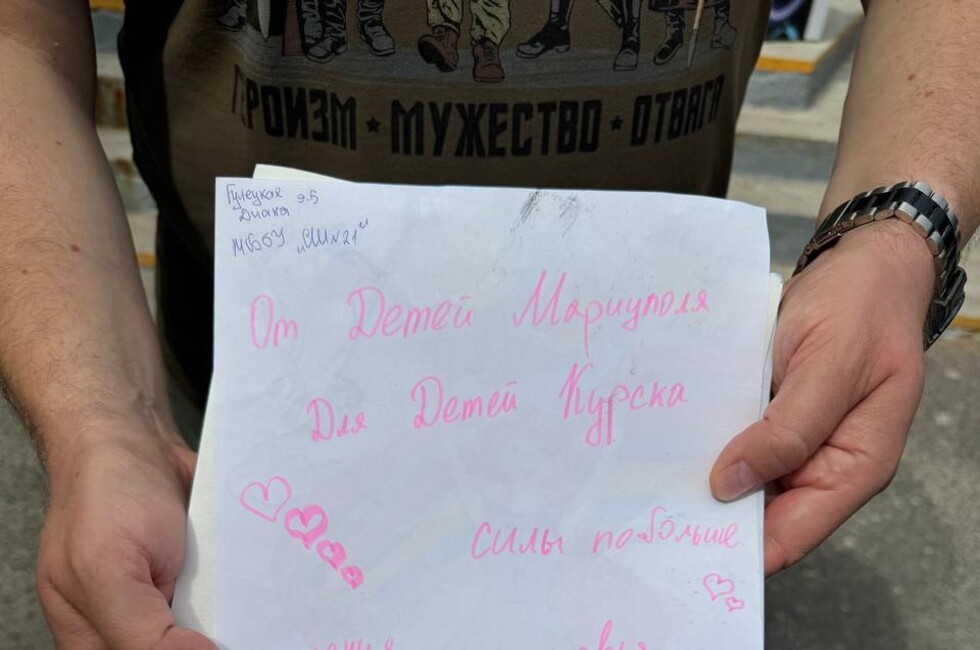 ГЕРОИЗМ ★ МУЖЕСТВО ★ ОТВАГА
Гулецкая 9-5
Диана
МБОУ „СШ№21"
От Детей Мариуполя
Для Детей Курска
силы побольше